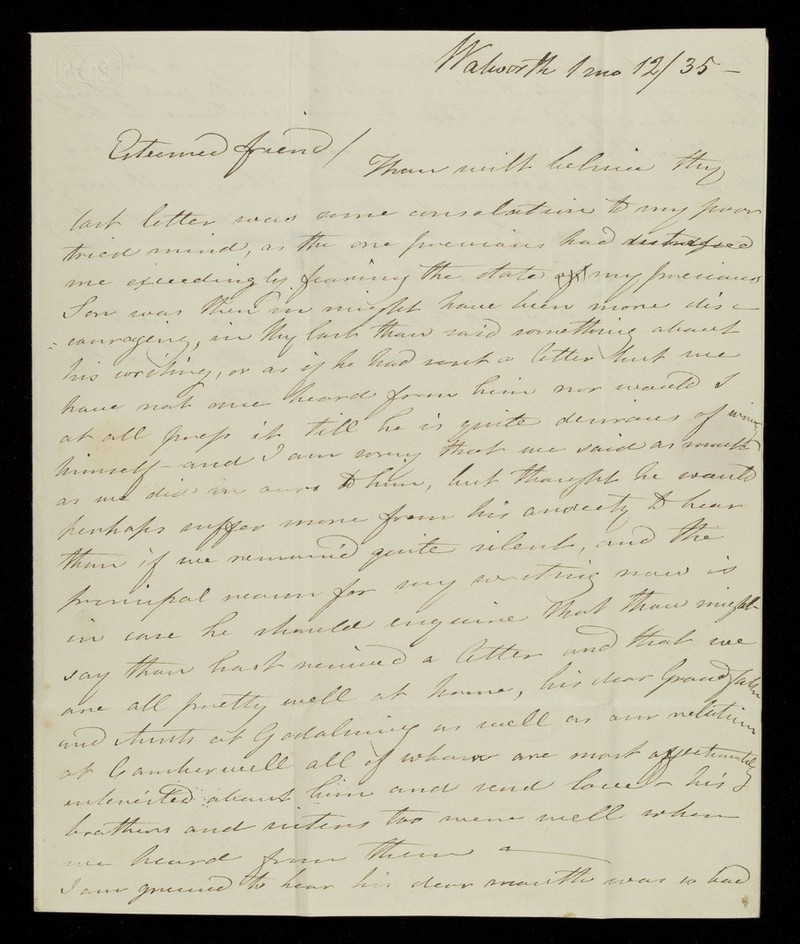 Walworth 1 mo 12/35 –
Esteemed friend / Thou wilt believe thy
last letter was some consolation to my poor
tried mind, as the one previous had distressed
me exceedingly fearing the state my precious
Son was then in might have been more dis-
-couraging, in thy last thou said something about
his writing, or as if he had sent a letter but we
have not once heard from him nor would I
at all press it till he is quite desirous of
himself – and I am sorry that we said as much
as we did in ours to him, but thought he would
perhaps suffer more from his anxiety to hear
than if we remain'd quite silent, and the
principal reason for my writing now is
in case he should enquire that thou might
say thou hast received a letter and that we
are all pretty well at home, his dear Grandfather
and Aunts at Godalming as well as our relations
at Camberwell all of whom are most affectionately
interested about him and send love – his
brothers and sisters too were well when
we heard from them –
I am grieved to hear his dear mouth was so bad